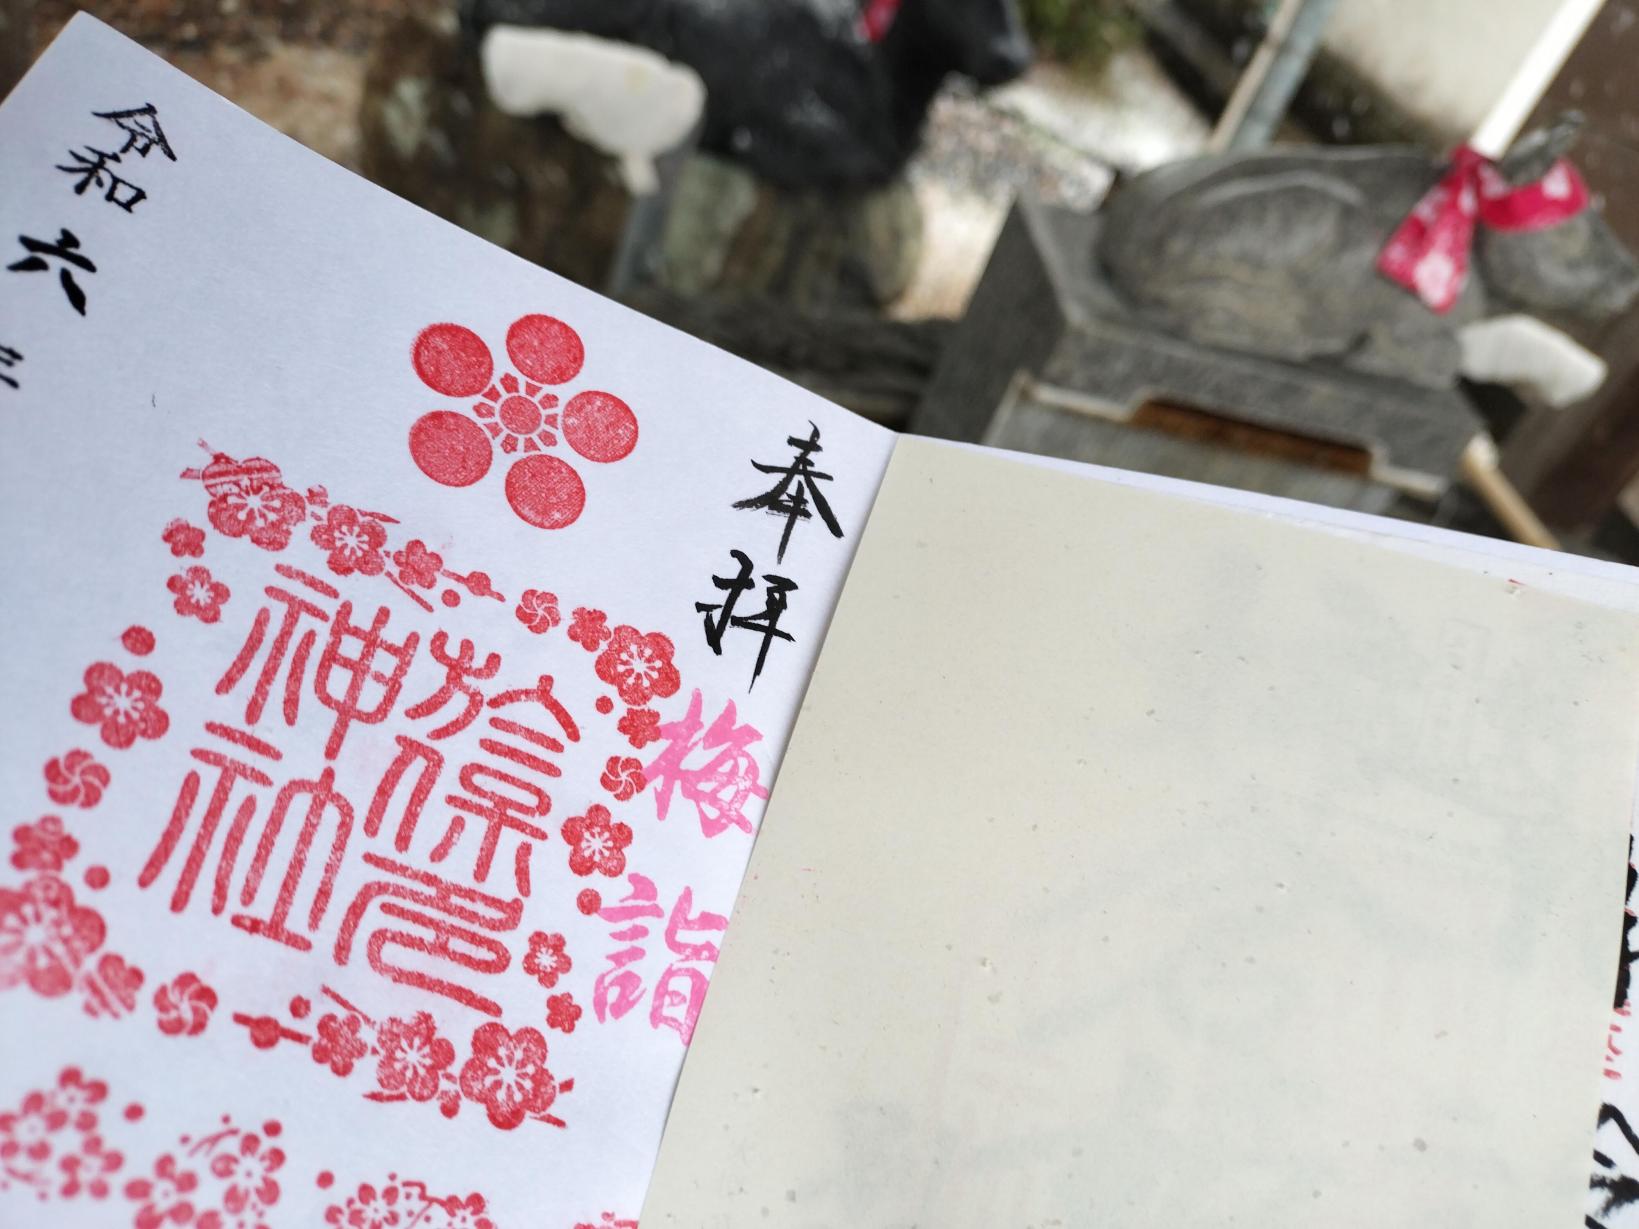 奉拝
梅詣
於保多
神社
令和六